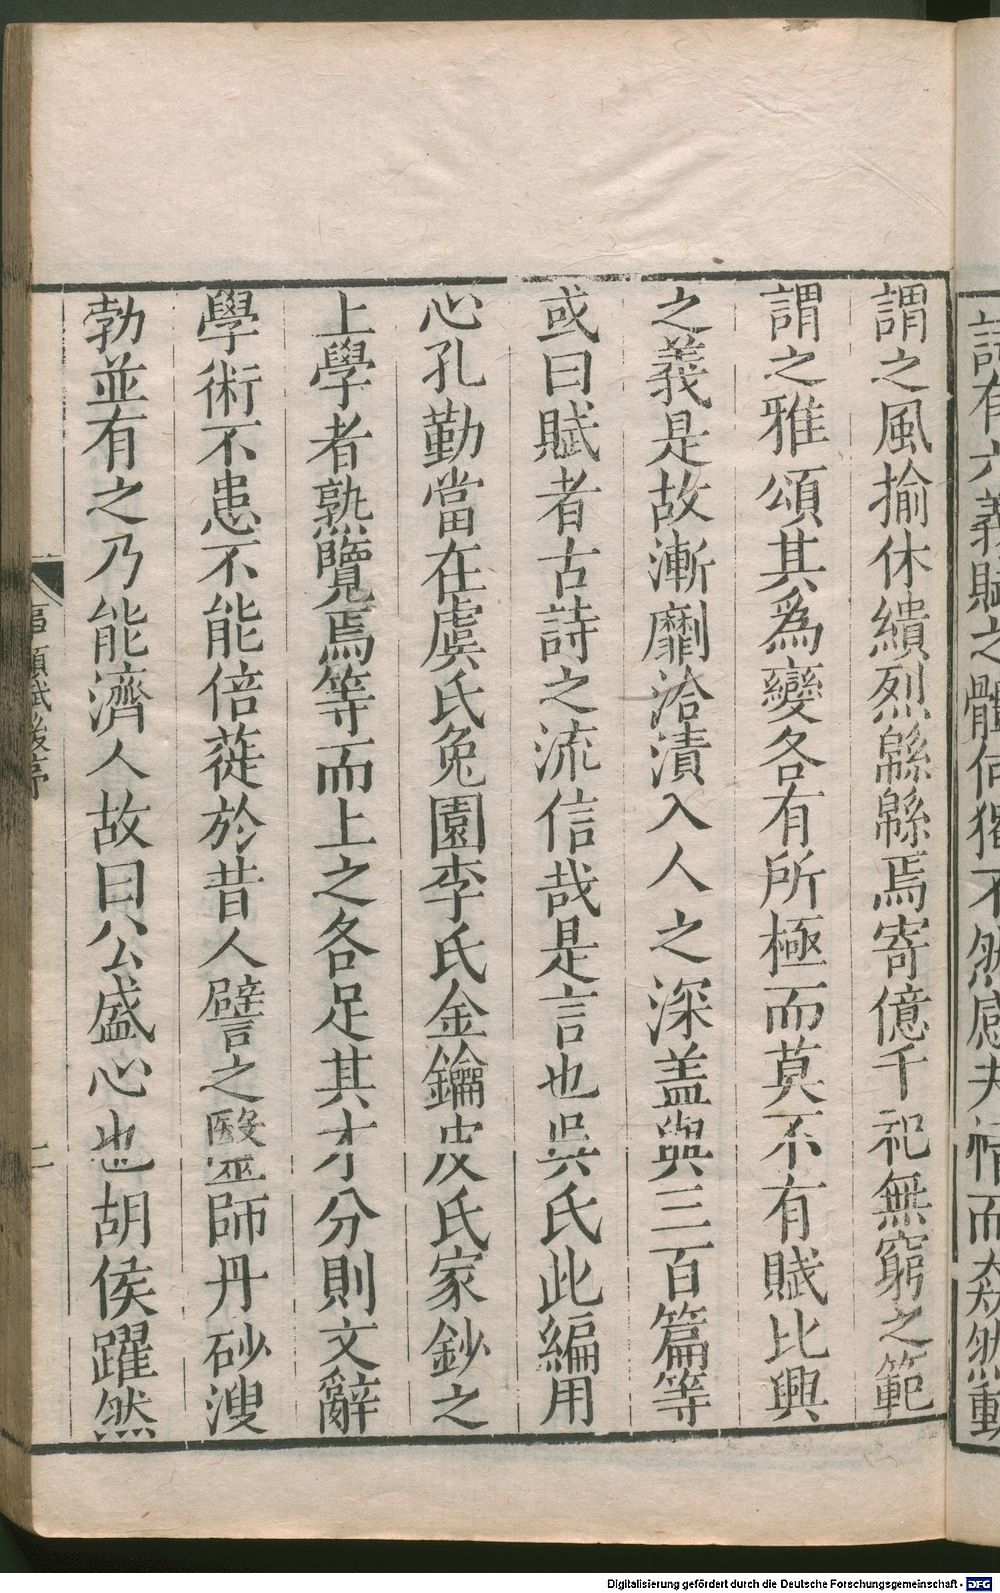 詩有六義賦之體何獨不然感夫情而粲然動
謂之風揄休績烈緜緜焉寄億千祀無窮之範
謂之雅頌其爲變各有所極而莫不有賦比興
之義是故漸劘洽漬入人之深盖與三百篇等
或曰賦者古詩之流信哉是言也吳氏此編用
心孔勤當在虞氏兔園李氏金鑰皮氏家鈔之
上學者熟覽焉等而上之各足其才分則文辭
學術不患不能倍蓰於昔人譬之毉𤫊師丹砂溲
勃並有之乃能濟人故曰公盛心也胡侯躍然
事類賦後序
二
Digitalisierung gefördert durch die Deutsche Forschungsgemeinschaft - DFG